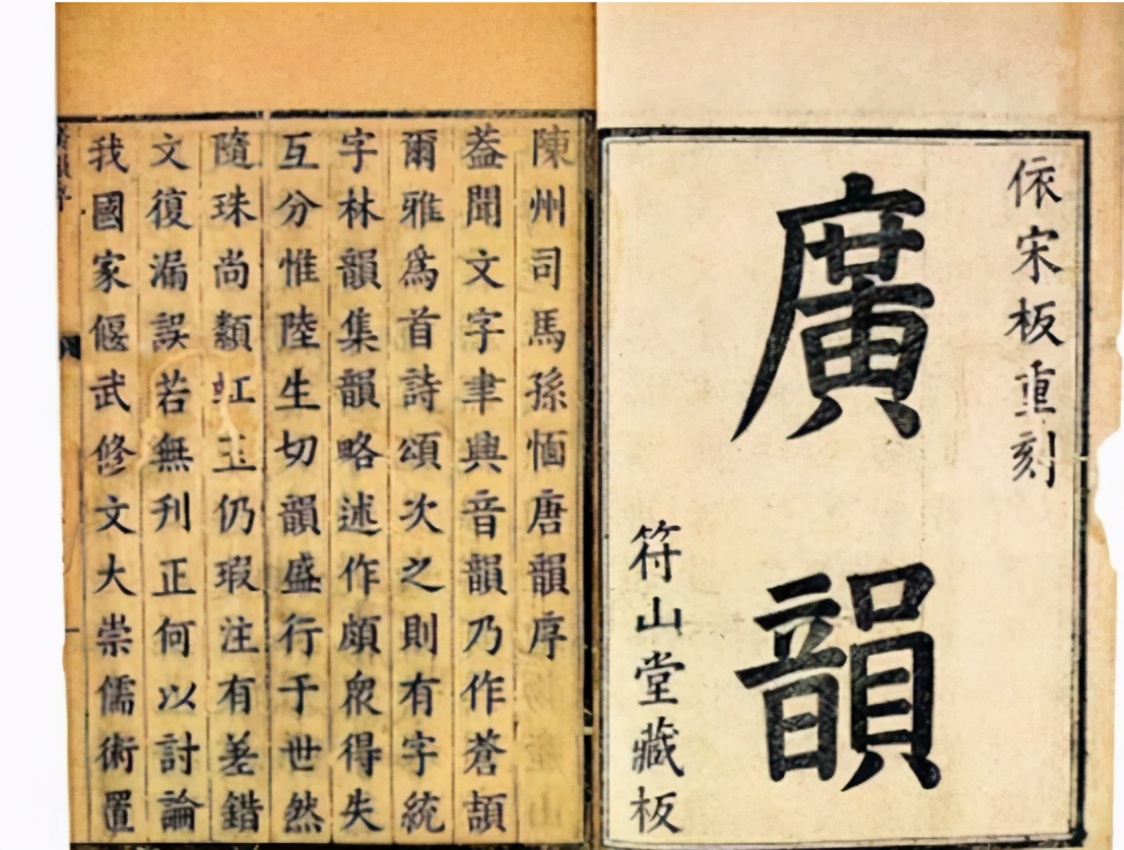 依宋板重刻
廣韻
符山堂藏板
陳州司馬孫愐唐韻序
葢聞文字聿興音韻乃作蒼頡
爾雅爲首詩頌次之則有字統
字林韻集韻略述作頗衆得失
互分惟陸生切韻盛行于世然
隨珠尚纇虹玉仍瑕注有差錯
文復漏誤若無刊正何以討論
我國家偃武修文大崇儒術置